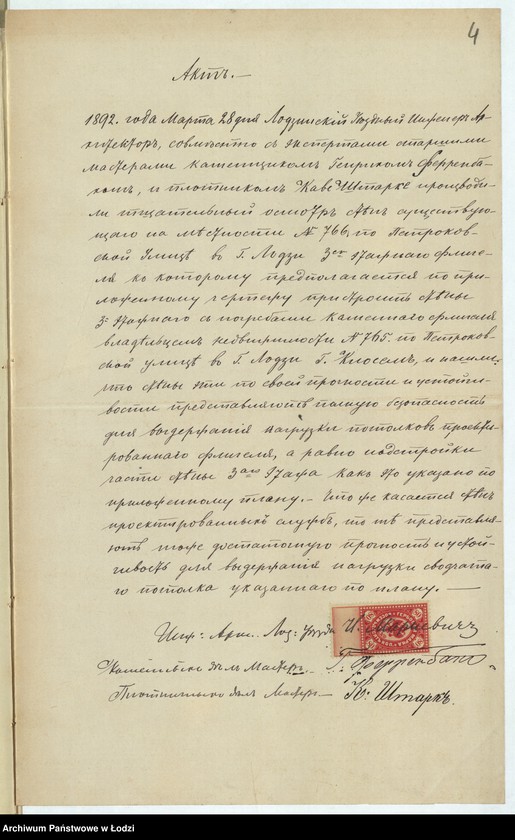 4
Актъ.—
1892. года Марта 28 дня Лодзинскій Уѣздный Инженеръ Ар-
хитекторъ, совмѣстно съ экспертами старшими
мастерами каменщикомъ Генрихомъ Ферренба-
комъ, и плотникомъ Штарке производи-
ли тщательный осмотръ стѣнъ существую-
щаго на мѣстности № 766, по Петроков-
ской улицѣ въ г. Лодзи 3хъ этажнаго флиге-
ля къ которому предполагается по при-
ложенному чертежу пристроить стѣны
3х этажнаго съ погребами каменнаго флигеля
владѣльцемъ недвижимости № 765. по Петроков-
ской улицѣ въ г. Лодзи Г. Клоссемъ, и нашли,
что стѣны эти по своей прочности и устойчи-
вости представляютъ полную безопасность
для выдержанія нагрузки потолковъ проекти-
рованнаго флигеля, а равно надстройки
части стѣны 3аго этажа какъ это указано по
приложенному плану.— Что же касается стѣнъ
проектированныхъ службъ, то тѣ представля-
ютъ тоже достаточную прочность и устой-
чивость для выдержанія нагрузки сводчата-
го потолка указаннаго по плану.—
Инж: Арх. Лод: уѣзда И. Маркевичъ
Каменьныхъ дѣлъ Мастеръ— Г. Ферренбахъ
Плотничныхъ дѣлъ Мастеръ— К: Штаркъ.
Archiwum Państwowe w Łodzi